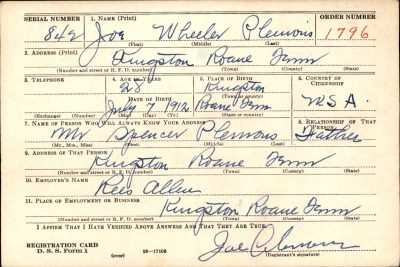 SERIAL NUMBER 1. NAME (Print) ORDER NUMBER
842 Joe Wheeler Plemons 1796
(First) (Middle) (Last)
2. ADDRESS (Print)
Kingston Roane Tenn
(Number and street or R. F. D. number) (Town) (County) (State)
3. TELEPHONE 4. AGE IN YEARS 5. PLACE OF BIRTH 6. COUNTRY OF CITIZENSHIP
28 Kingston
DATE OF BIRTH (Town or county)
July 7 1912 Roane Tenn U.S.A.
(Exchange) (Number) (Mo.) (Day) (Yr.) (State or country)
7. NAME OF PERSON WHO WILL ALWAYS KNOW YOUR ADDRESS 8. RELATIONSHIP OF THAT PERSON
Mr Spencer Plemons Father
(Mr., Mrs., Miss) (First) (Middle) (Last)
9. ADDRESS OF THAT PERSON
Kingston Roane Tenn
(Number and street or R. F. D. number) (Town) (County) (State)
10. EMPLOYER'S NAME
Rees Allen
11. PLACE OF EMPLOYMENT OR BUSINESS
Kingston Roane Tenn
(Number and street or R. F. D. number) (Town) (County) (State)
I AFFIRM THAT I HAVE VERIFIED ABOVE ANSWERS AND THAT THEY ARE TRUE.
REGISTRATION CARD Joe Plemons
D. S. S. Form 1 (over) 16—17105 (Registrant's signature)